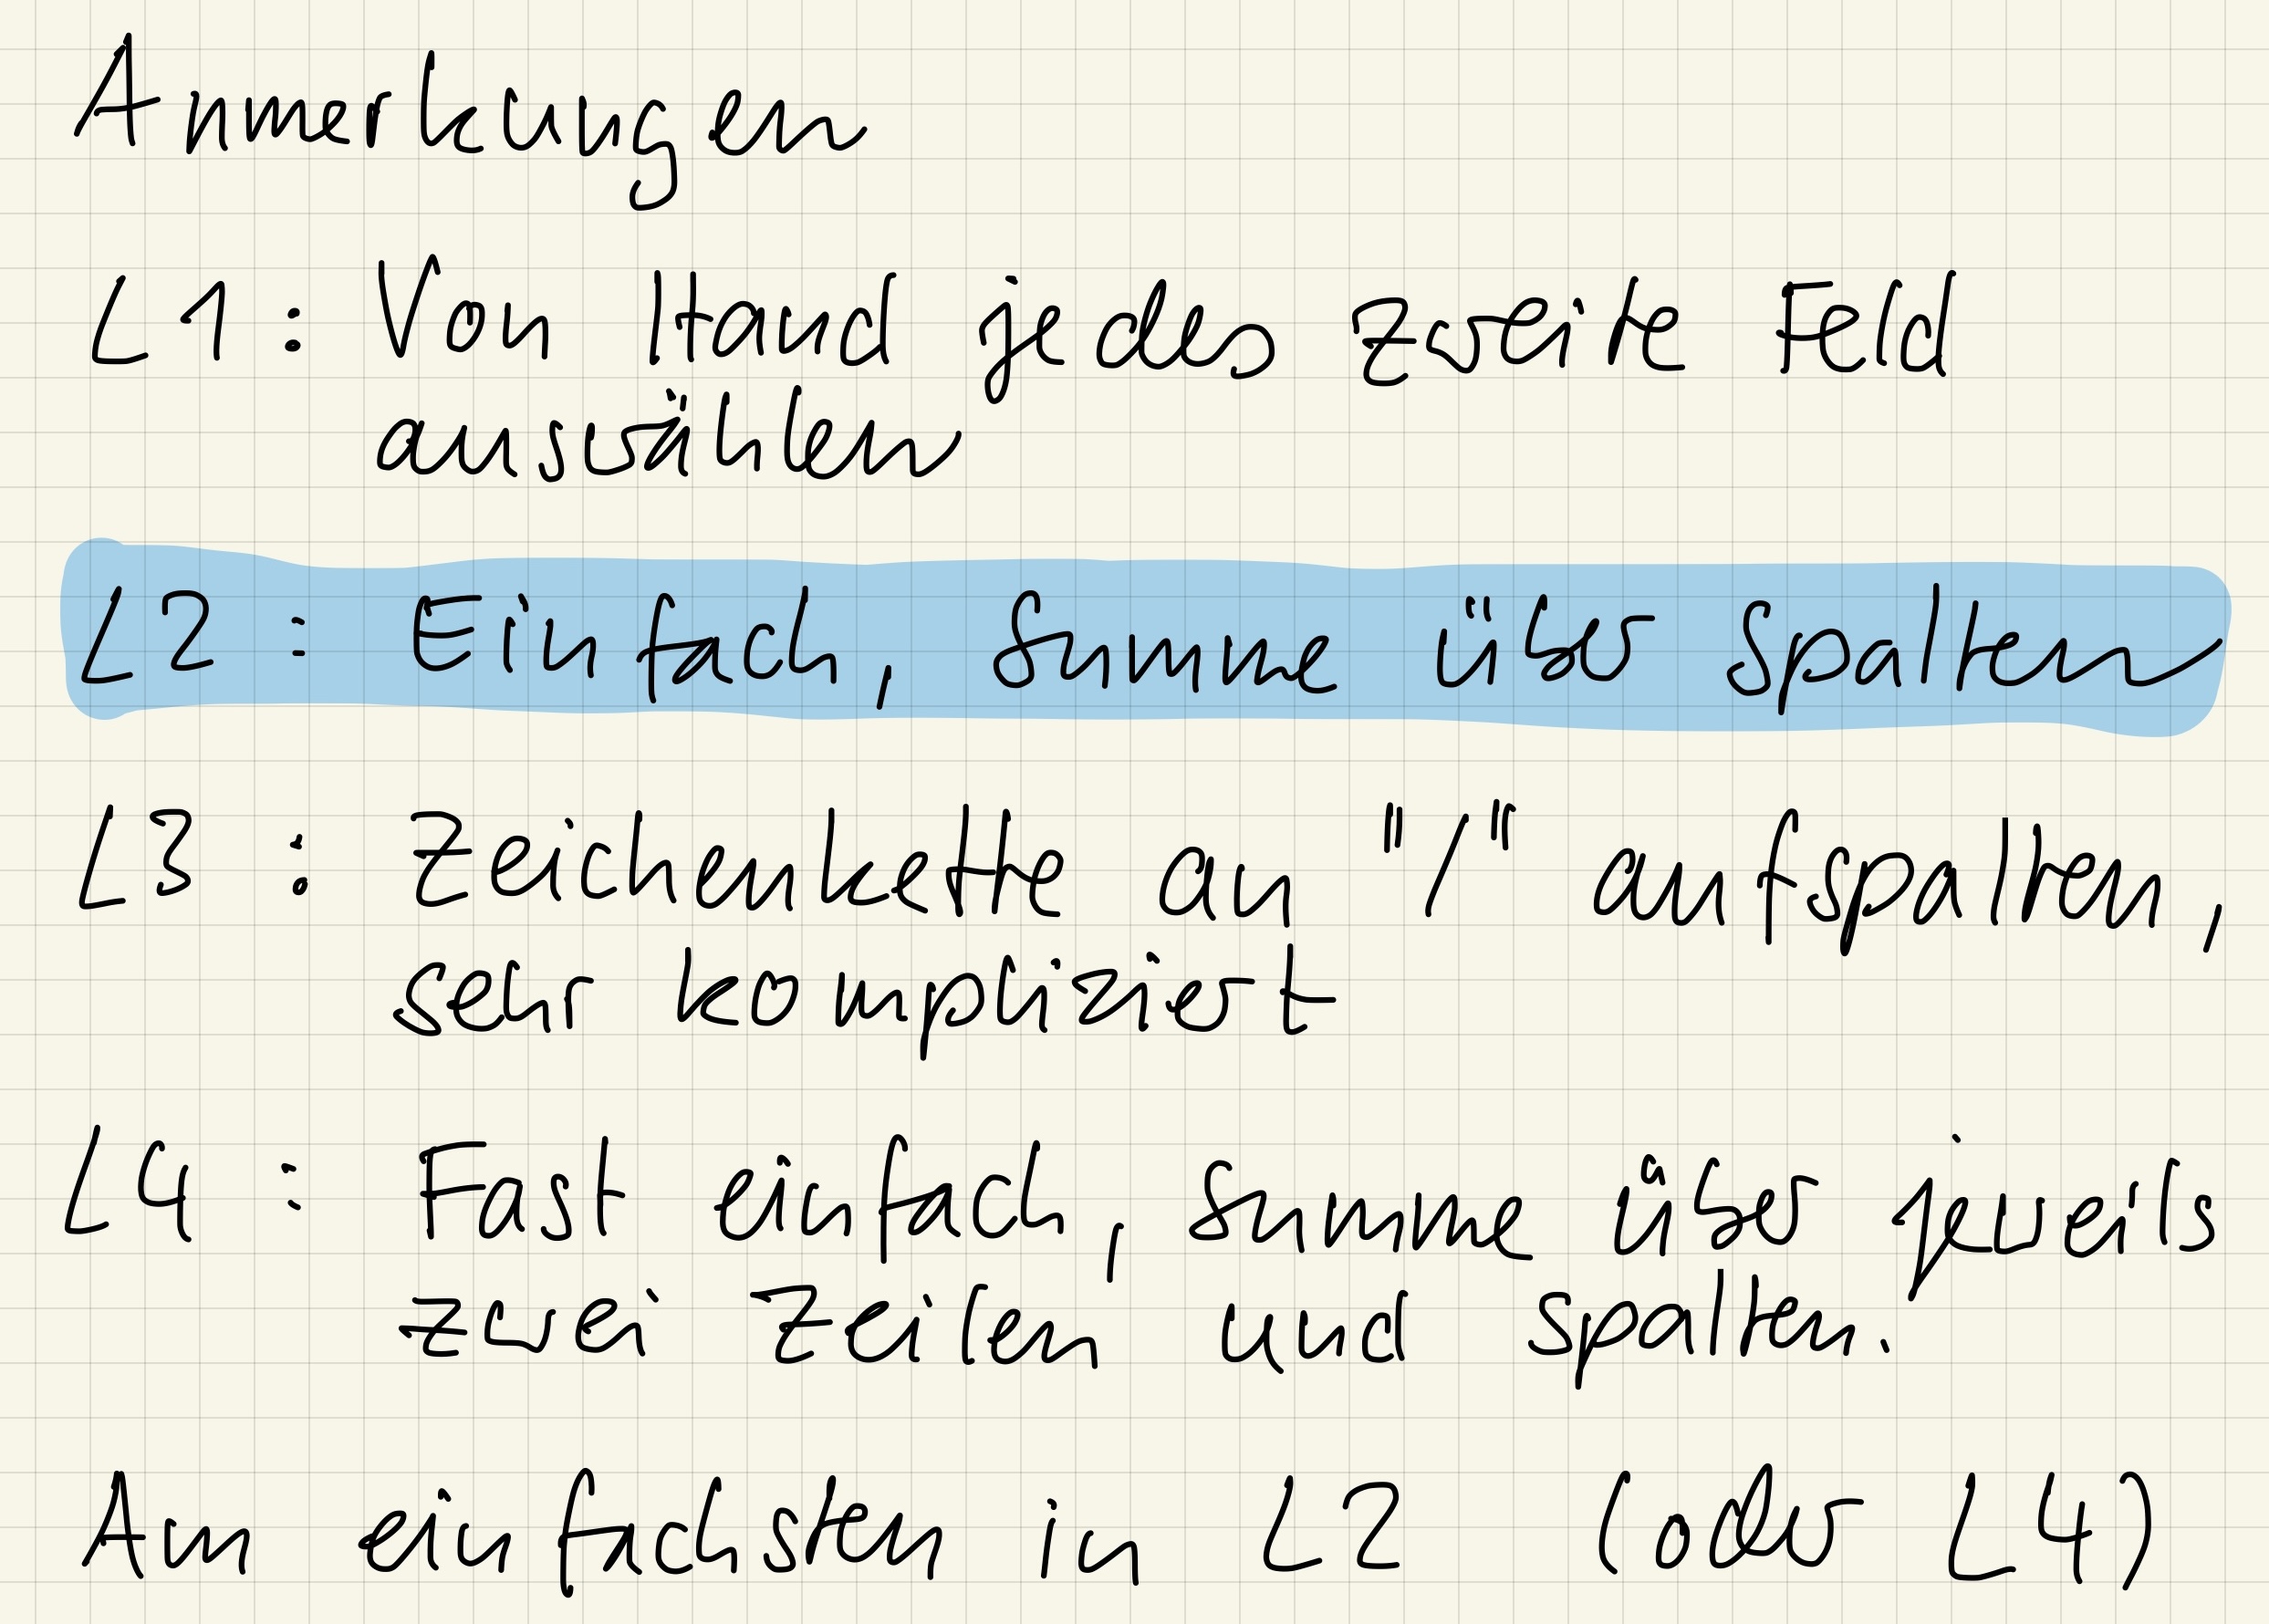 Anmerkungen
L1: Von Hand jedes zweite Feld
auswählen
L2: Einfach, Summe über Spalten
L3: Zeichenkette an "/" aufspalten,
sehr kompliziert
L4: Fast einfach, Summe über jeweils
zwei Zeilen und Spalten.
Am einfachsten in L2 (oder L4)